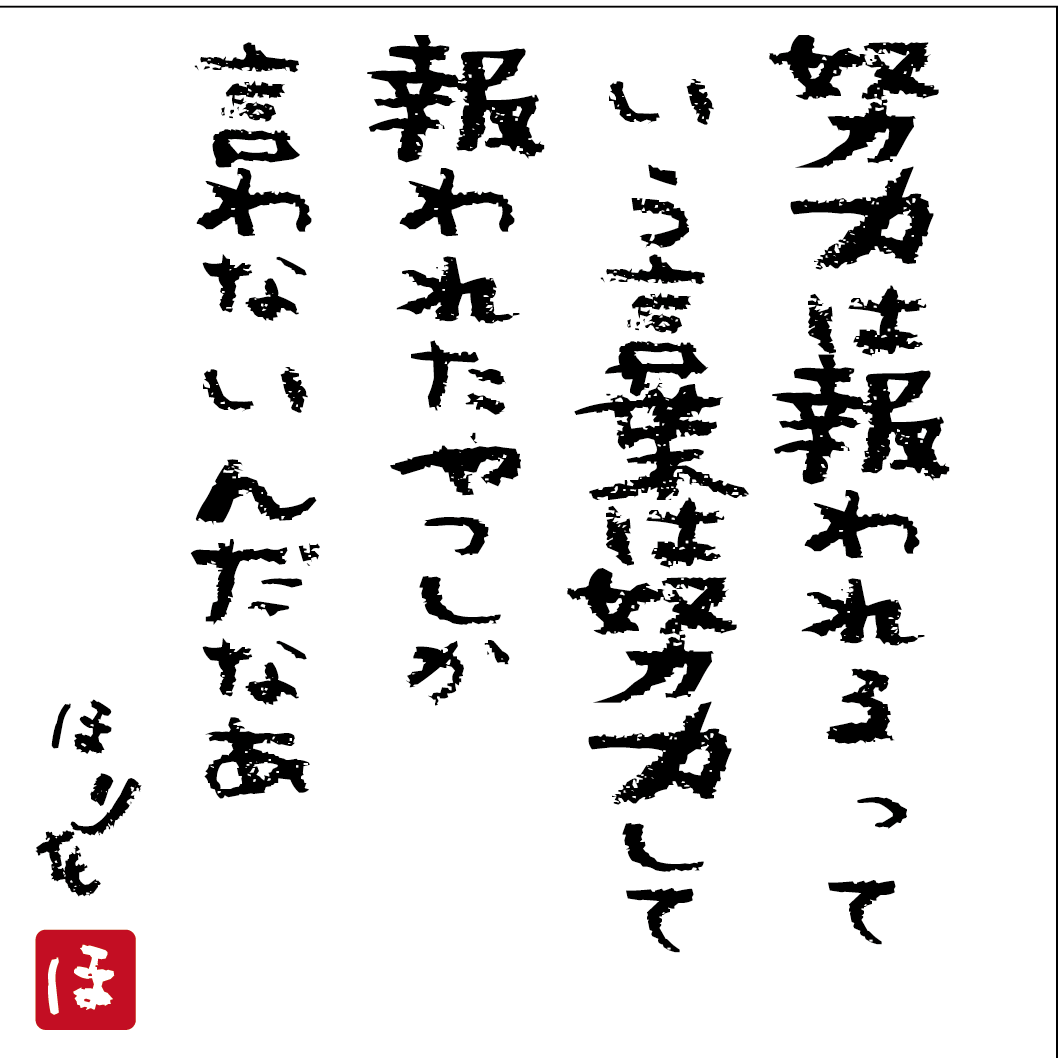 努力は報われるって
いう言葉は努力して
報われたやつしか
言わないんだなあ
ほりを
ほ